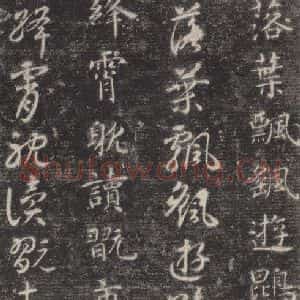 落葉飄颻遊鵾
落葉飄颻遊
絳霄耽讀翫市
絳霄耽讀翫
Shufawang.CN